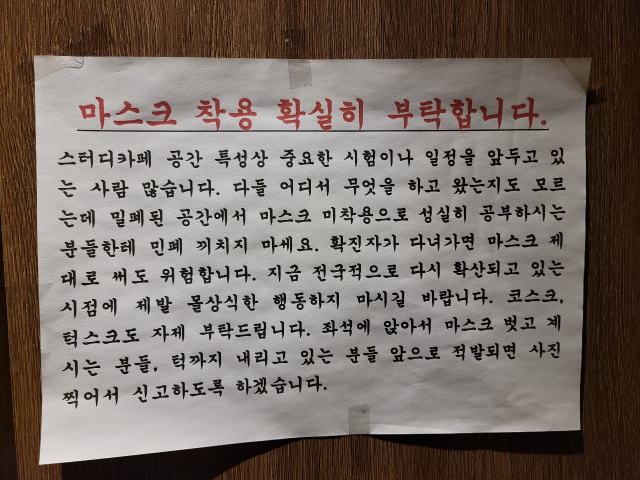 마스크 착용 확실히 부탁합니다.
스터디카페 공간 특성상 중요한 시험이나 일정을 앞두고 있
는 사람 많습니다. 다들 어디서 무엇을 하고 왔는지도 모르
는데 밀폐된 공간에서 마스크 미착용으로 성실히 공부하시는
분들한테 민폐 끼치지 마세요. 확진자가 다녀가면 마스크 제
대로 써도 위험합니다. 지금 전국적으로 다시 확산되고 있는
시점에 제발 몰상식한 행동하지 마시길 바랍니다. 코스크,
턱스크도 자제 부탁드립니다. 좌석에 앉아서 마스크 벗고 계
시는 분들, 턱까지 내리고 있는 분들 앞으로 적발되면 사진
찍어서 신고하도록 하겠습니다.